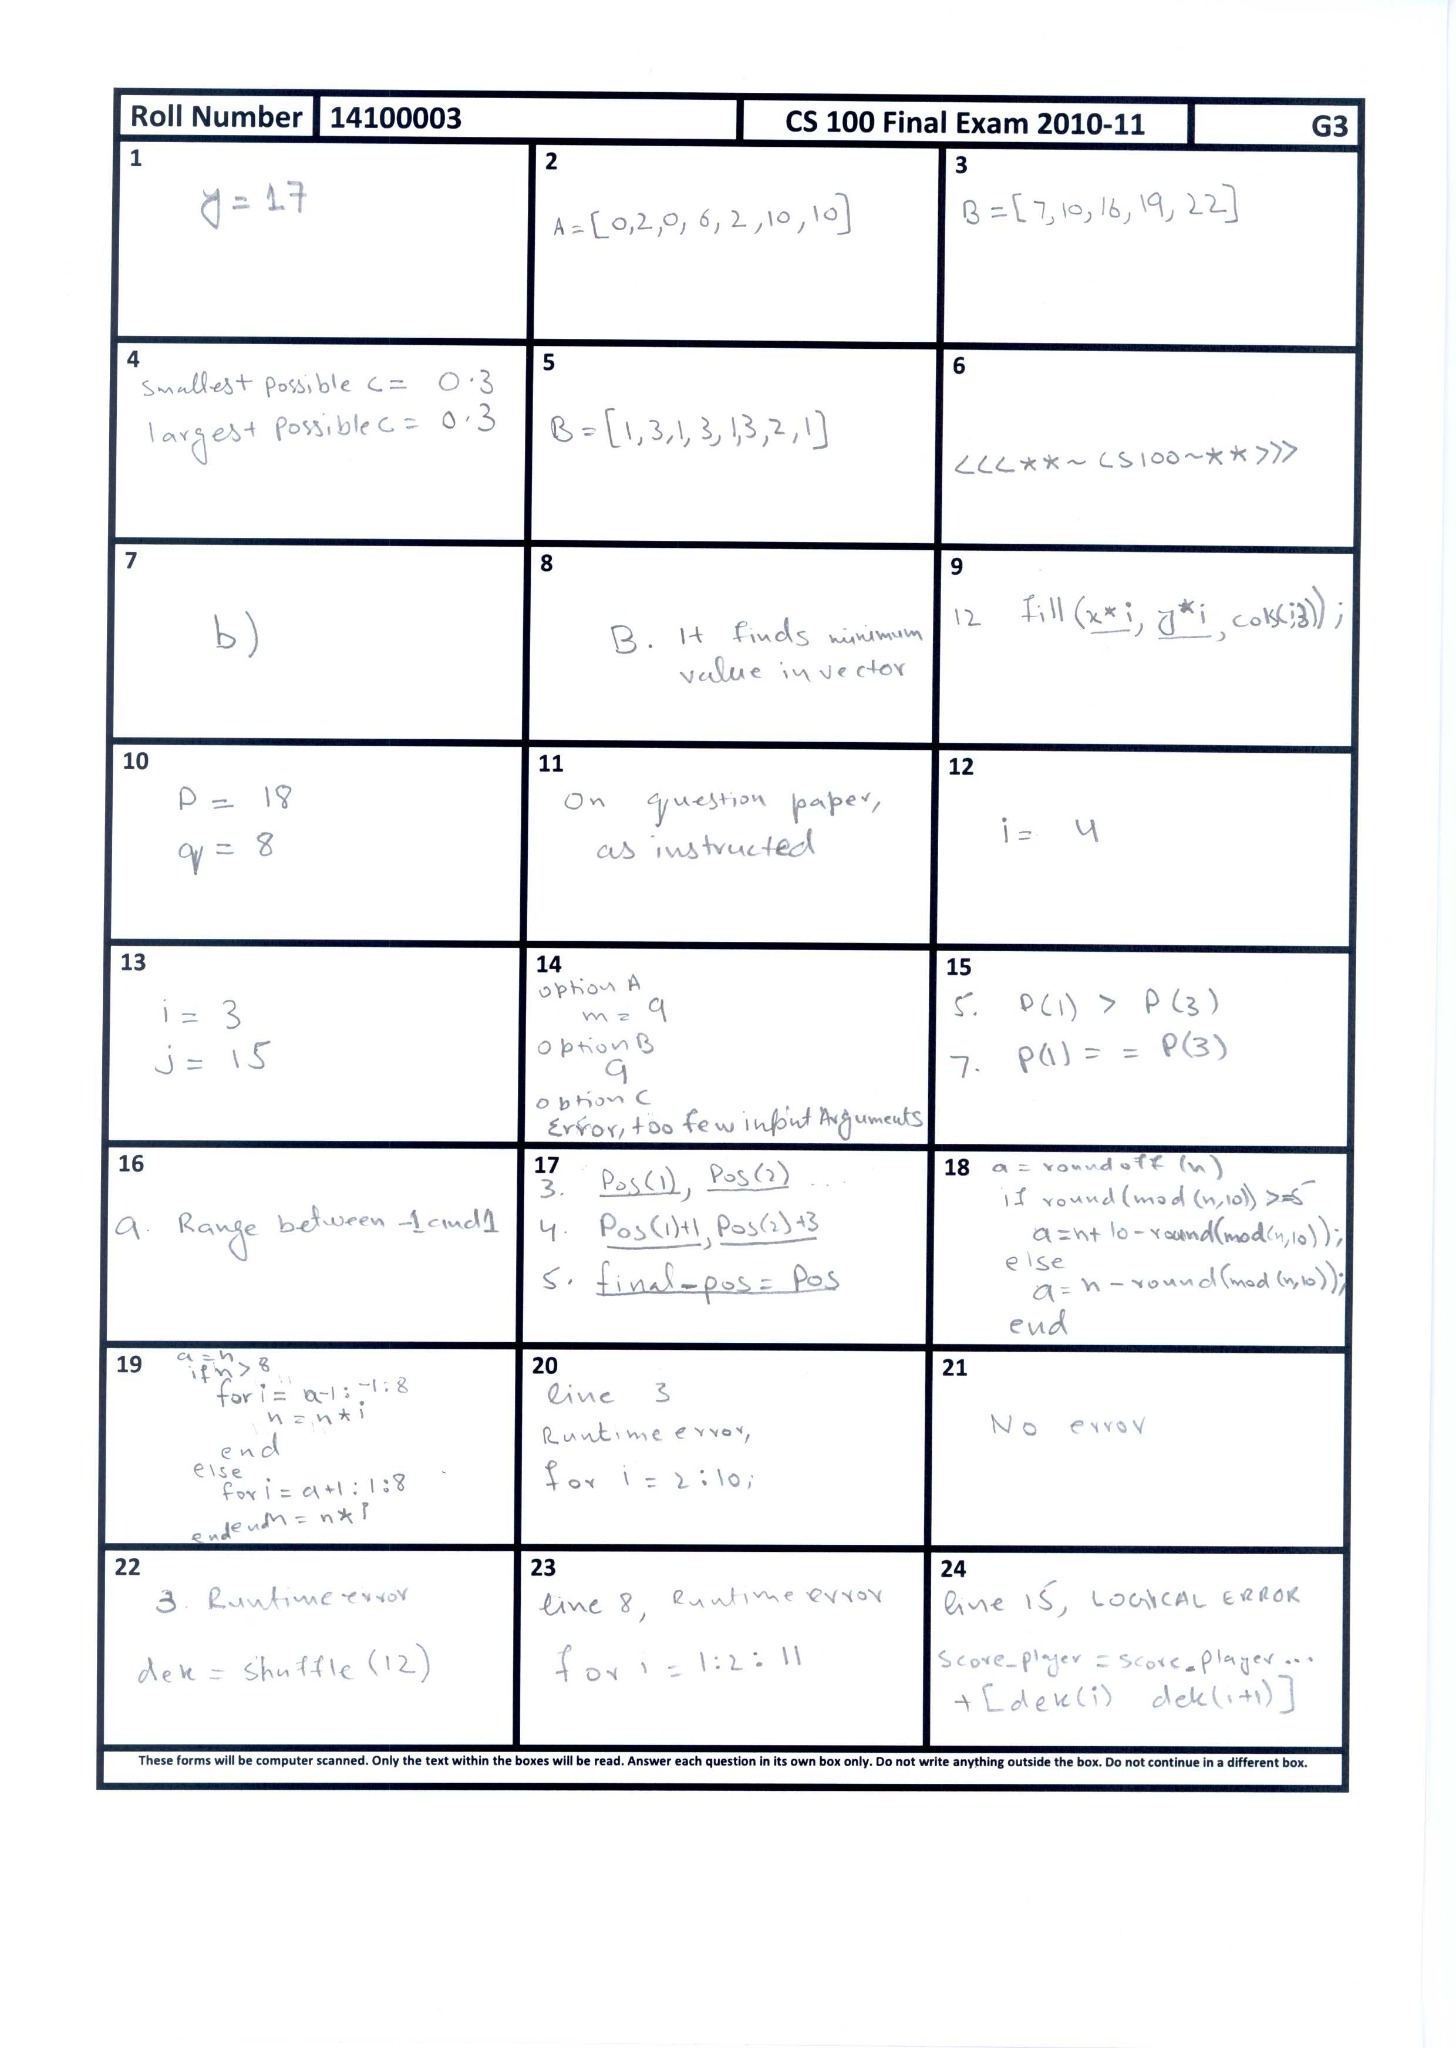 Roll Number 14100003 CS 100 Final Exam 2010-11 G3
1
y = 17
2
A = [0,2,0, 6, 2 ,10, 10]
3
B = [7, 10, 16, 19, 22]
4
Smallest possible c = 0.3
largest possible c = 0.3
5
B = [1,3,1, 3, 13, 2, 1]
6
<<<**~CS100~**>>>
7
b)
8
B. It finds minimum
value in vector
9
12 fill (x*i, y*i,
10
p = 18
q = 8
11
On question paper,
as instructed
12
i = 4
13
i = 3
j = 15
14
option A
m = 9
option B
9
option C
Error, too few input Arguments
15
5. P(1) > P(3)
7. P(1) = = P(3)
16
a. Range between -1 and 1
17
3. Pos(1), Pos(2) ...
4. Pos(1)+1, Pos(2)+3
5. final_pos = Pos
18 a = roundoff (n)
if round(mod(n,10)) >=5
a=n+10-round(mod(n,10));
else
a = n - round(mod(n,10));
end
19
a = n
if n > 8
for i = a-1: -1:8
n = n*i
end
else
for i = a+1:1:8
end end n = n*i
20
line 3
Runtime error,
for i = 2:10;
21
No error
22
3. Runtime error
dek = shuffle (12)
23
line 8, Runtime error
for i = 1:2:11
24
line 15, LOGICAL ERROR
Score_player = score_player ...
+ [dek(i) dek(i+1)]
These forms will be computer scanned. Only the text within the boxes will be read. Answer each question in its own box only. Do not write anything outside the box. Do not continue in a different box.